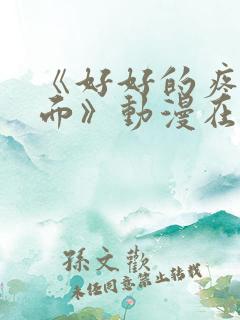 《好好的疼
而》動漫在
孫文歡
未经同意禁止转载